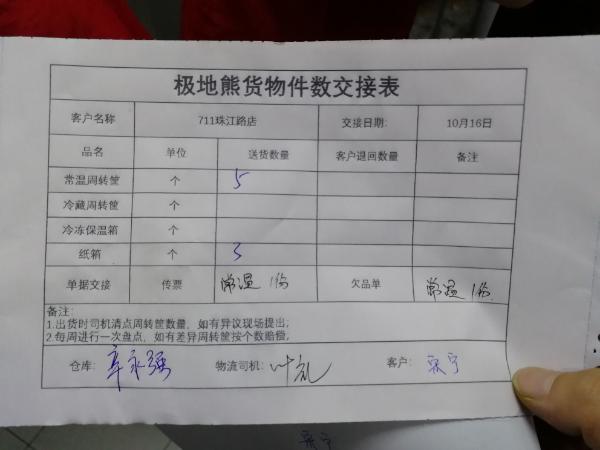 极地熊货物件数交接表
客户名称 711珠江路店 交接日期: 10月16日
品名 单位 送货数量 客户退回数量 备注
常温周转筐 个 5
冷藏周转筐 个
冷冻保温箱 个
纸箱 个 3
单据交接 传票 常温1份 欠品单 常温1份
备注:
1.出货时司机清点周转筐数量，如有异议现场提出;
2.每周进行一次盘点，如有差异周转筐按个数赔偿;
仓库: 辛永强 物流司机: 叶礼 客户: